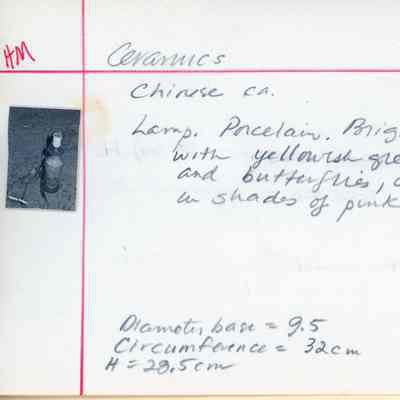 HM
Ceramics
Chinese ca.
Lamp. Porcelain. Brig
with yellowish gre
and butterflies,
in shades of pink
Diameter, base = 9.5
Circumference = 32cm
H = 28.5cm